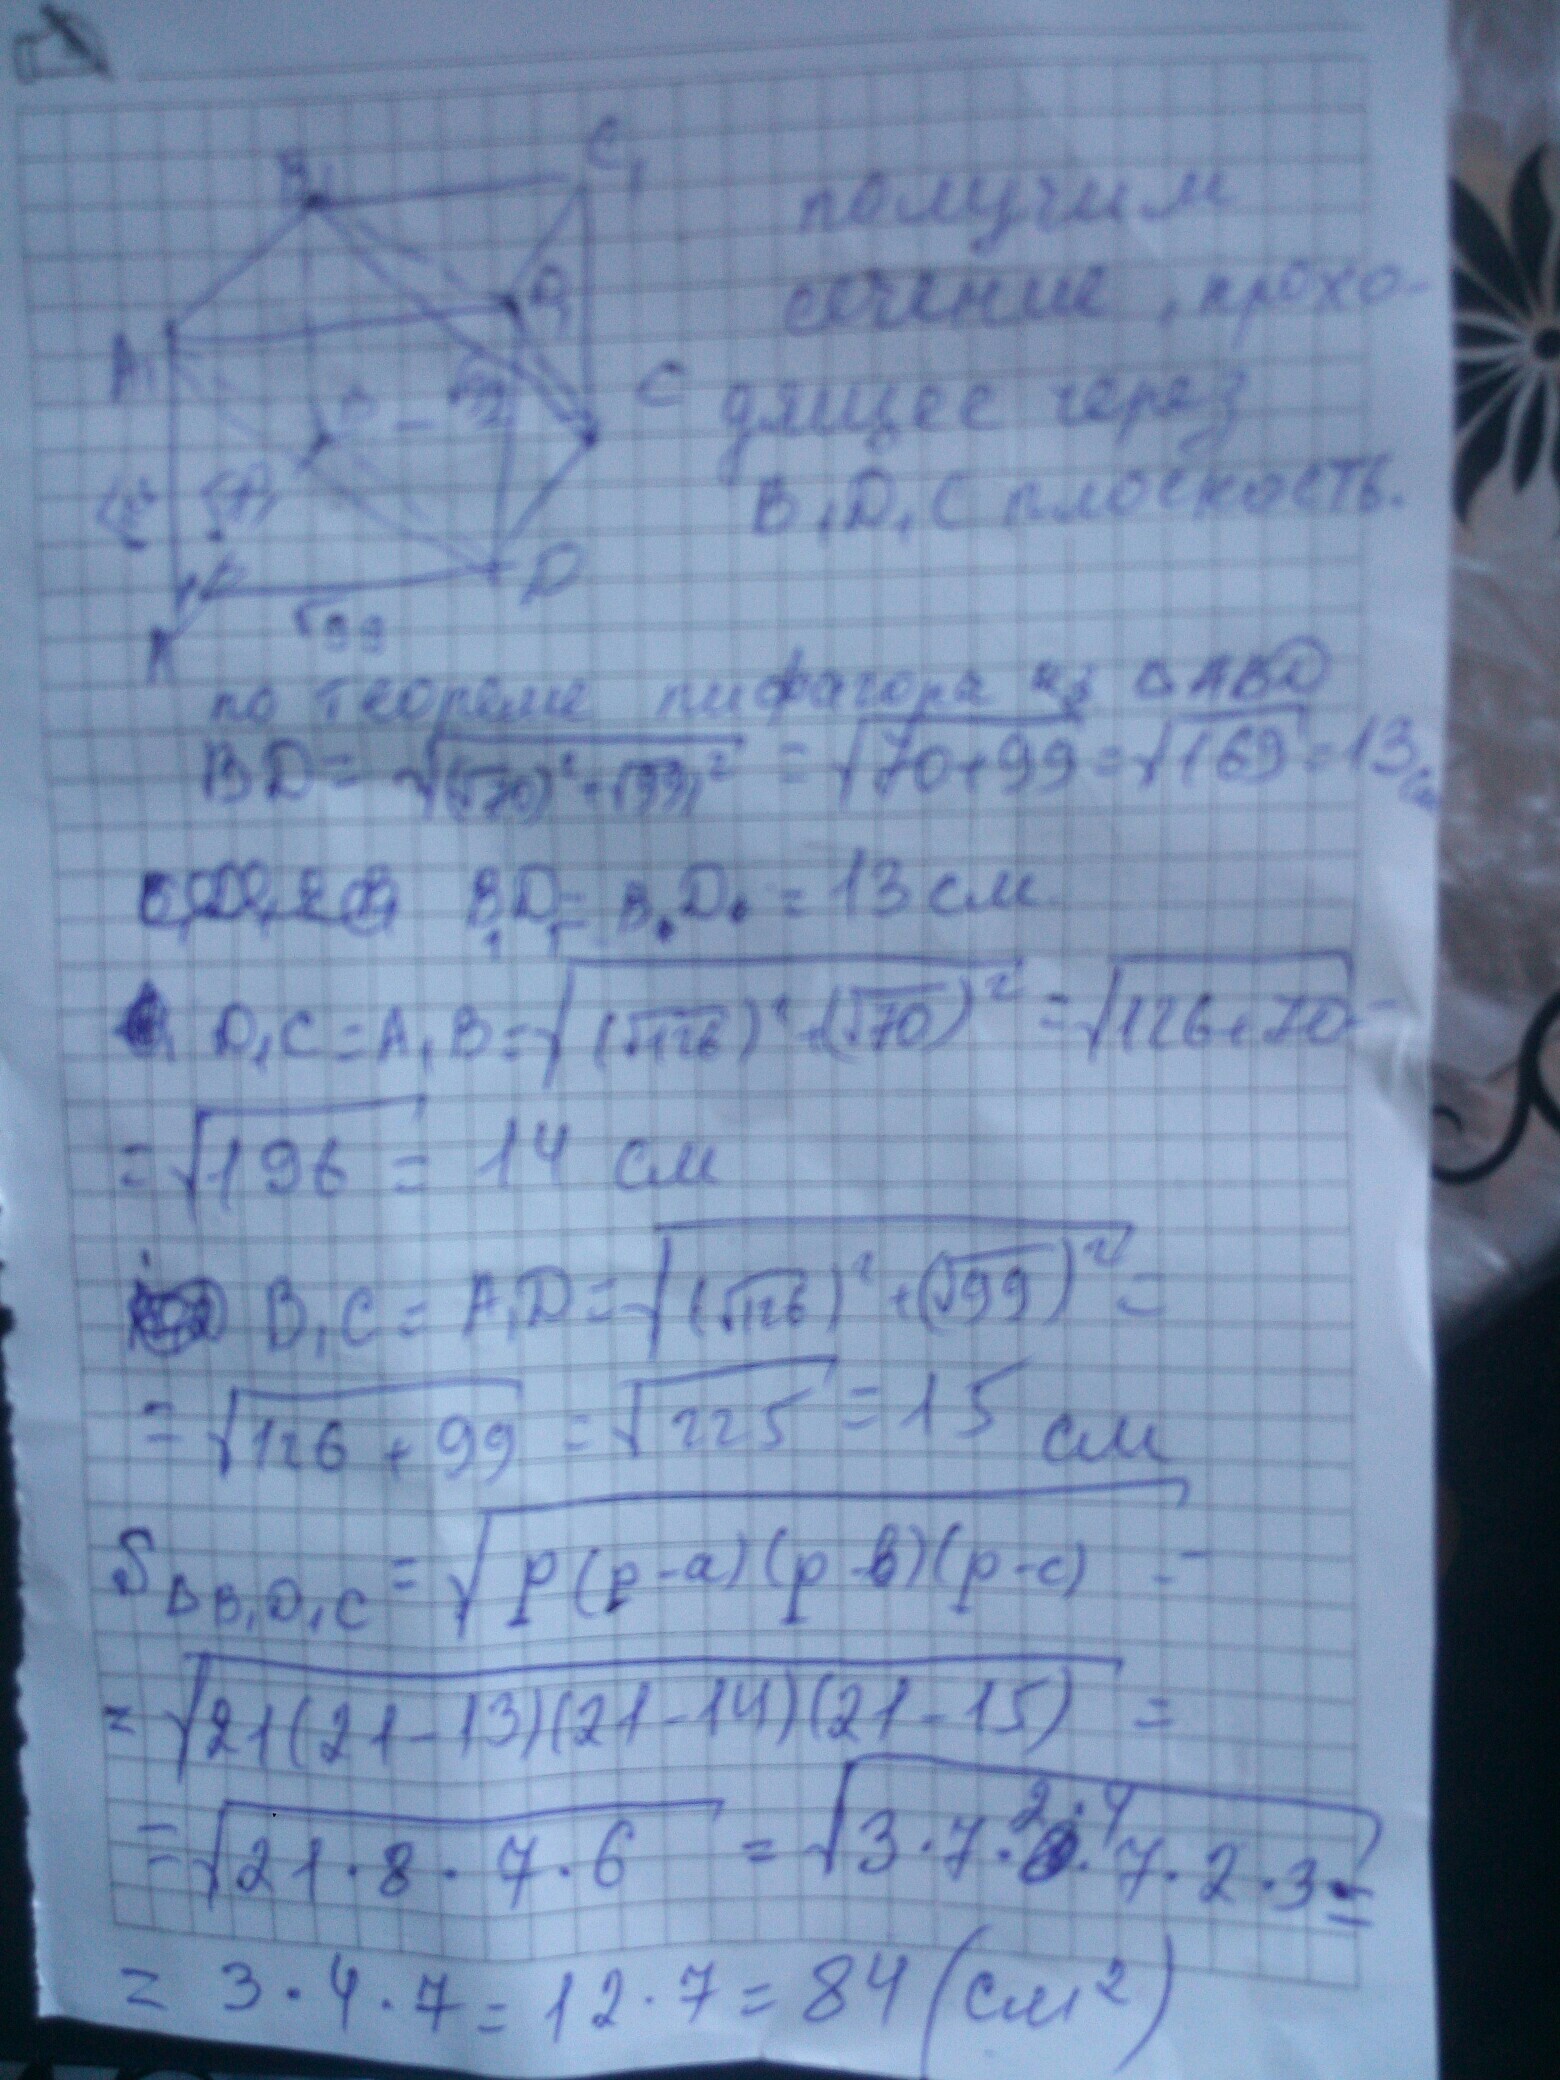 B₁ C₁
получим
сечение, прохо-
A₁ D₁
дящее через
C
B₁D₁C плоскость.
D
A √99
по теореме пифагора из ΔABD
BD = √((√70)² + (√99)²) = √(70+99) = √169 = 13 см
B₁D₁ = B₁D₁ = 13 см
D₁C = A₁B = √((√126)² + (√70)²) = √(126+70) =
= √196 = 14 см
B₁C = A₁D = √((√126)² + (√99)²) =
= √(126 + 99) = √225 = 15 см
S ΔB₁D₁C = √(p(p-a)(p-b)(p-c)) =
= √(21(21-13)(21-14)(21-15)) =
= √(21·8·7·6) = √(3·7·2·4·7·2·3) =
= 3·4·7 = 12·7 = 84 (см²)